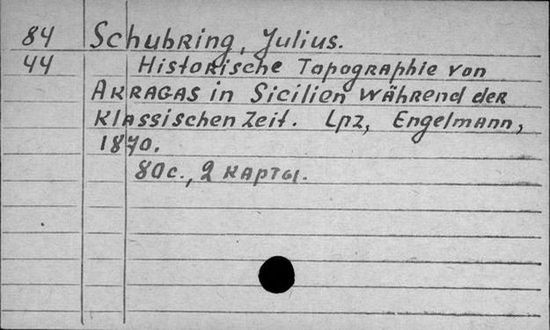 84 Schubring, Julius.
44 Historische Topographie von
Akragas in Sicilien während der
klassischen Zeit. Lpz, Engelmann,
1870.
80 с., 2 карты.